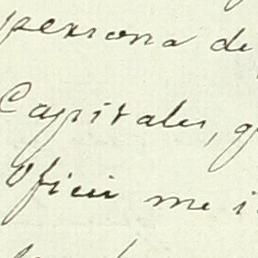 persona de
Capitales, q
Ofici me i